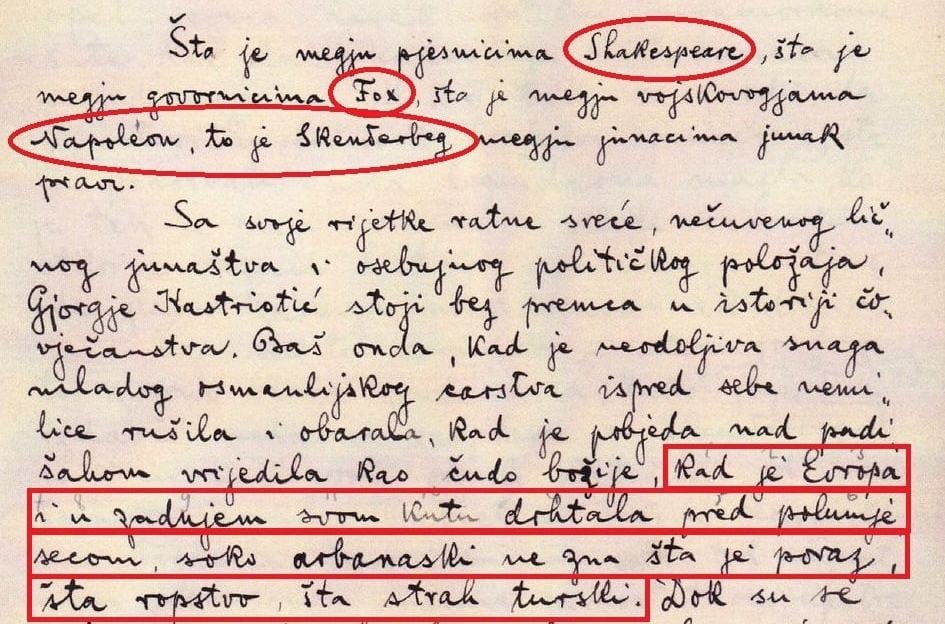 Šta je megju pjesnicima Shakespeare, šta je
megju govornicima Fox, šta je megju vojskovogjama
Napoléon, to je Skenderbeg megju junacima junak
pravi.
Sa svoje rijetke ratne sreće, nečuvenog lič„
nog junaštva i osebujnog političkog položaja,
Gjorgje Kastriotić stoji bez premca u istoriji čo„
vječanstva. Baš onda, kad je neodoljiva snaga
mladog osmanlijskog carstva ispred sebe nemi„
lice rušila i obarala, kad je pobjeda nad padi
šahom vrijedila kao čudo božije, kad je Evropa
i u zadnjem svom kutu drhtala pred polumje
secom, soko arbanaski ne zna šta je poraz,
šta ropstvo, šta strah turski. Dok su se